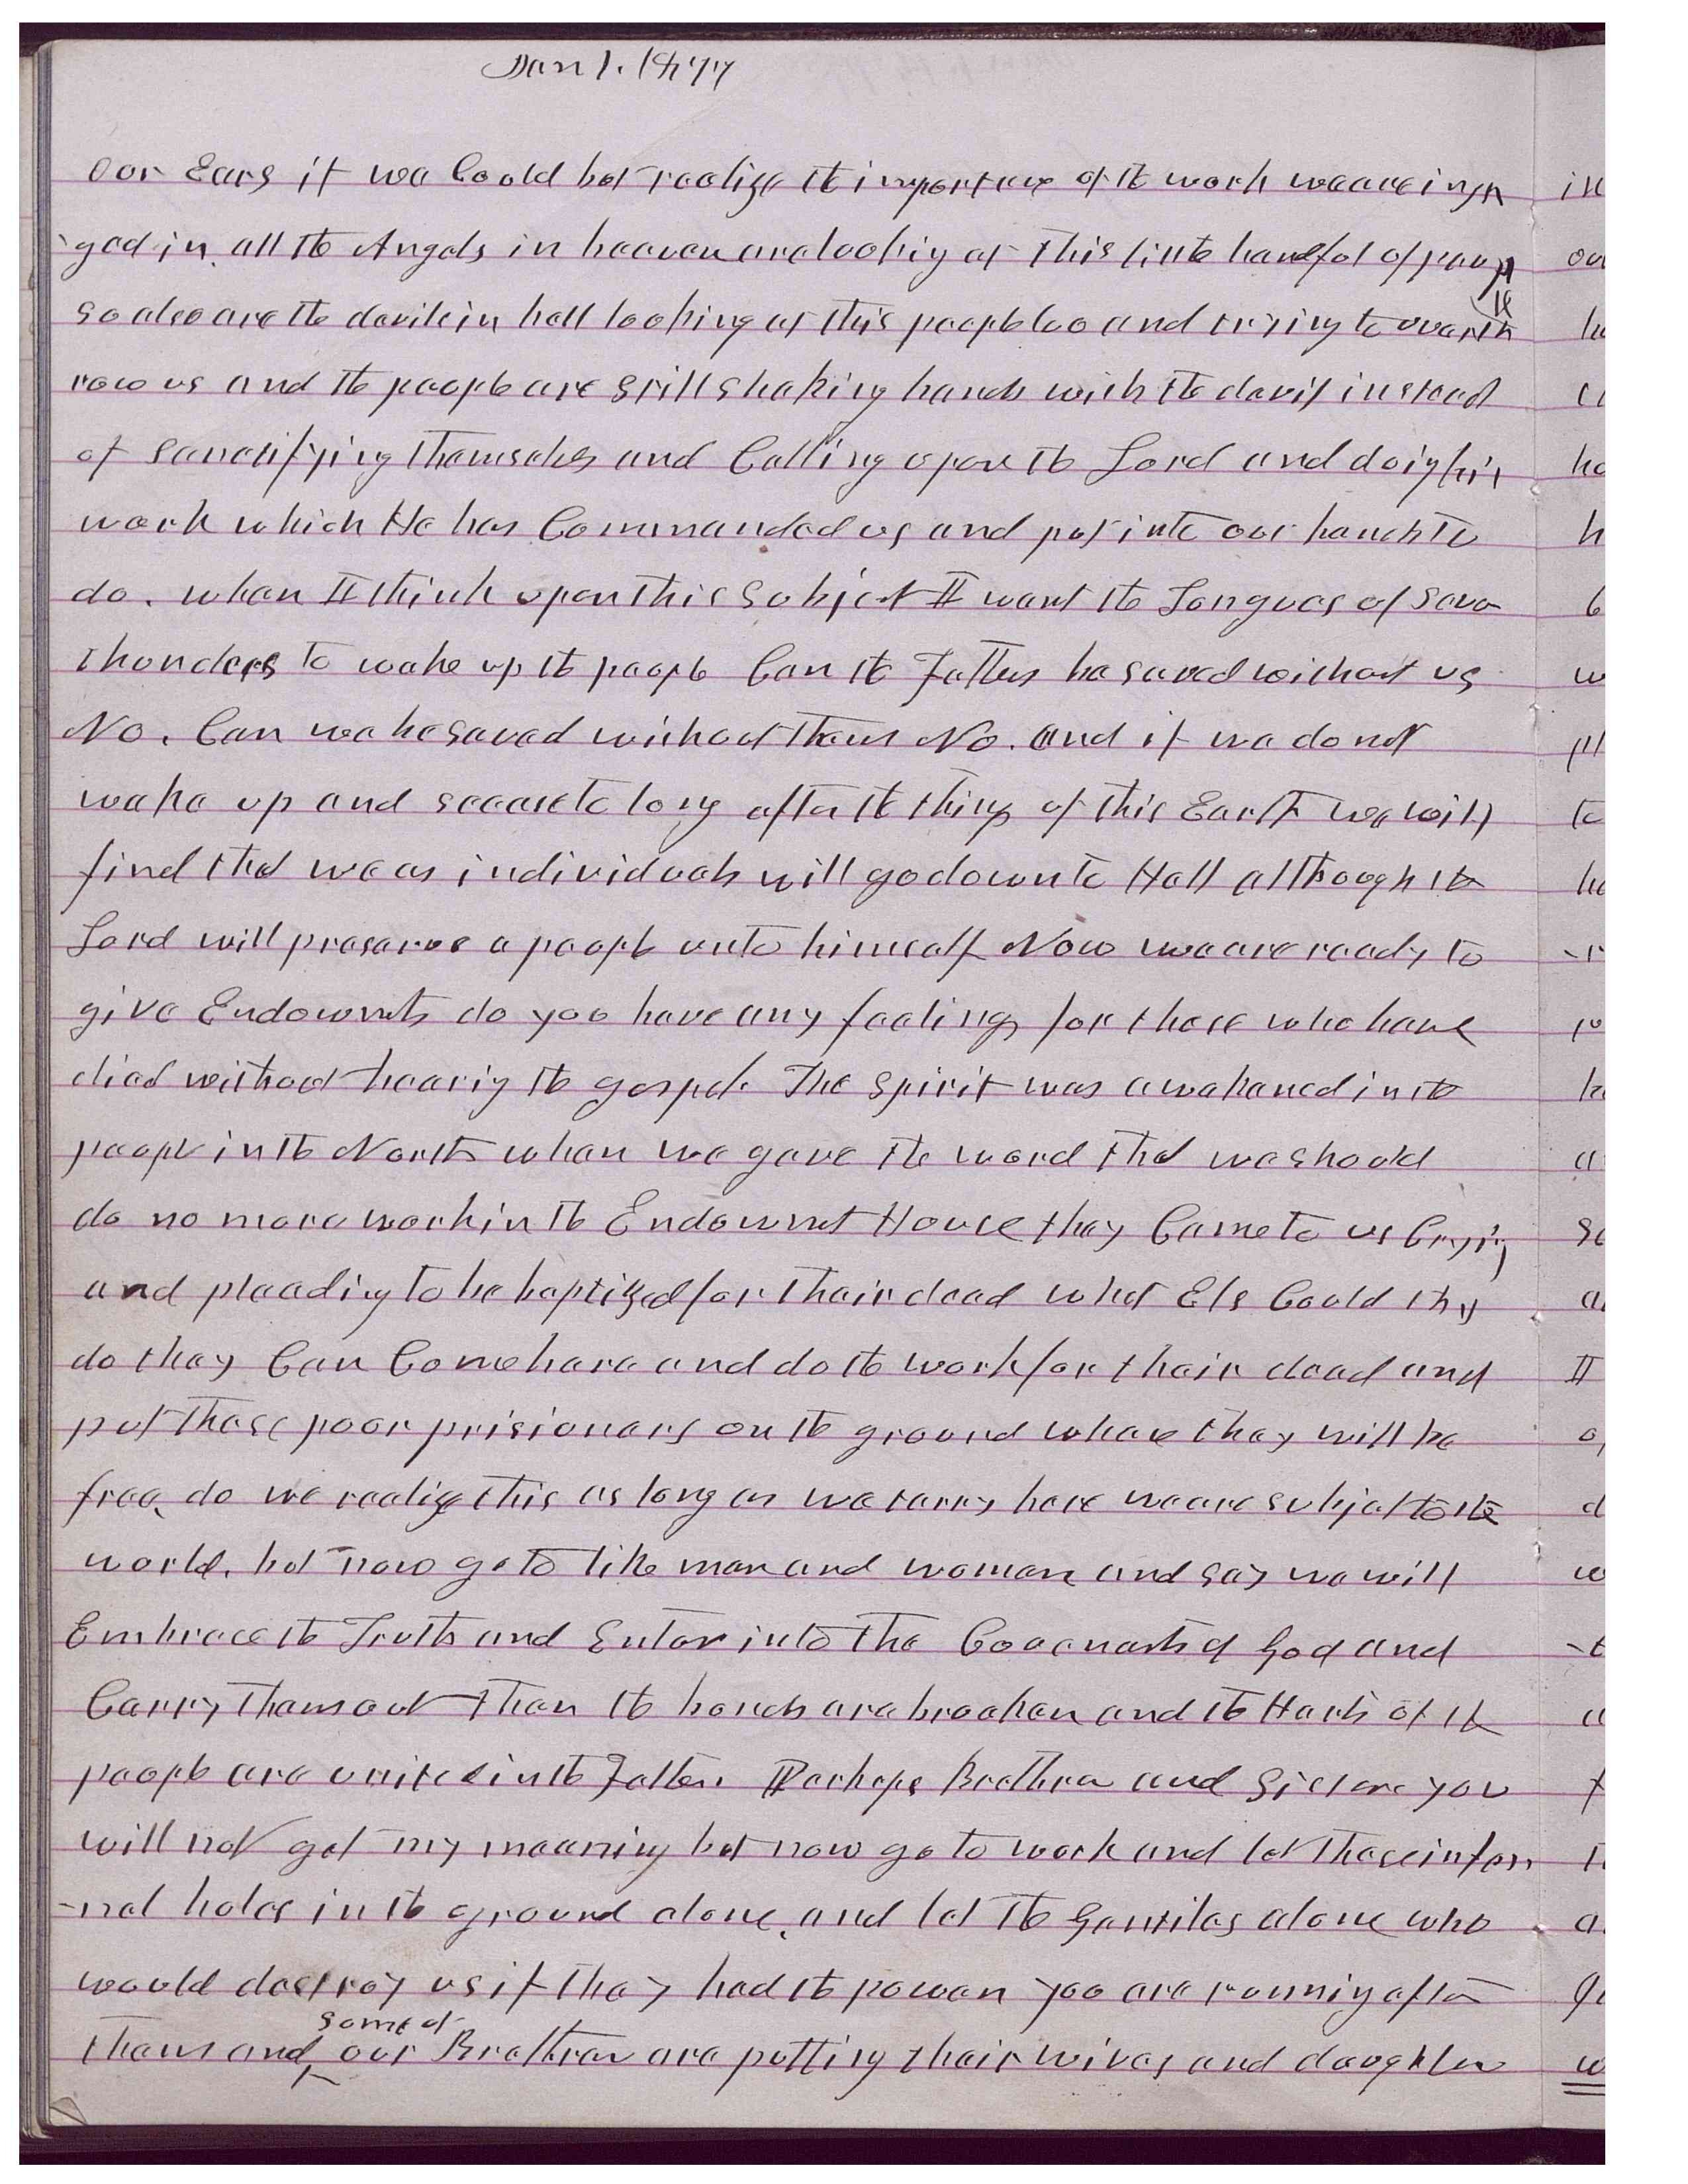 Jan 1. 1877
our Ears if we Could but realize the importance of the work we are inga
-ged in. all the Angels in heaven are looking at this little handful of people
so also are the devils in hell looking at this people too and trying to overth
row us and the people are still shaking hands with the devil instead
of sanctifying themselves and Calling upon the Lord and doing his
work which He has Commanded us and put into our hands to
do. when I think upon this subject I want the Tongues of seven
thunders to wake up the people Can the Fathers be saved without us
No. Can we be saved without them No. and if we do not
wake up and seease to long after the things of this Earth we will
find that we as individuals will go down to Hell although the
Lord will preserve a people unto himself Now we are ready to
give Endowmets do you have any feelings for those who have
died without hearing the gospel. The spirit was awakened in the
people in the North when we gave the word that we should
do no more work in the Endowmet House they Came to us Crying
and pleading to be baptized for their dead what Els Could they
do they Can Come here and do the work for their dead and
put these poor prisioners on the ground where they will be
free, do we realize this as long as we tarry here we are subjet to the
world. but now go to like men and women and say we will
Embrace the Truth and Enter into the Covenants of God and
Carry them out then the bonds are breaken and the Harts of the
people are united in the Father. Perhaps Brethren and Sisters you
will not get my meaning but now go to work and let these infer
-nal holes in the ground alone, and let the Gentiles alone who
would destroy us if they had the power you are running after
some of
them and our Brethren are putting their wives and daughters